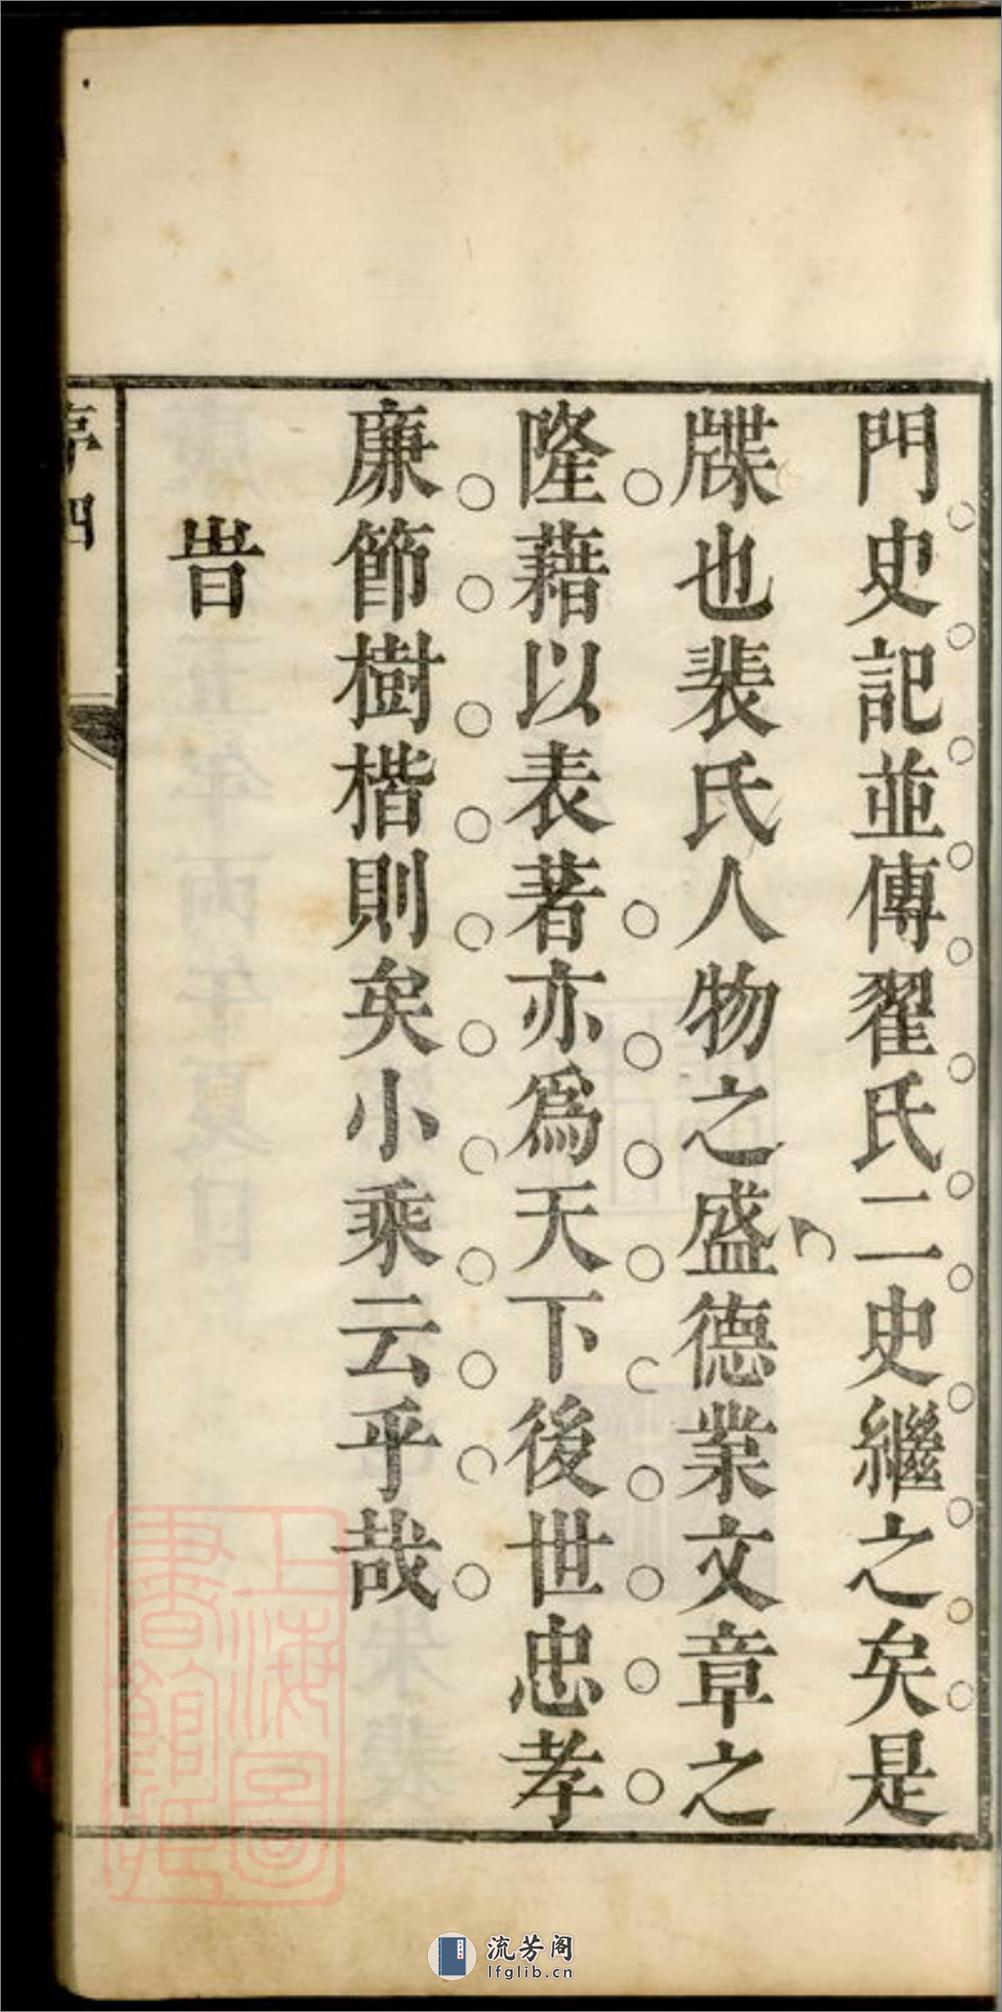 門史記並傳翟氏二史繼之矣是
牒也裴氏人物之盛德業文章之
隆藉以表著亦爲天下後世忠孝
廉節樹楷則矣小乘云乎哉
旹
序 四
上海圖
書館藏
流芳阁
lfglib.cn